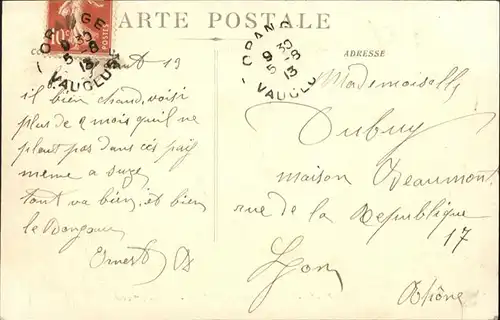 CARTE POSTALE
ORANGE
9 30
5 - 8
13
VAUCLUSE
ORANGE
9 30
5 - 8
13
VAUCLUSE
10c
POSTES
ADRESSE
13
il bien chaud, voisi
plus de 2 mois qu'il ne
pleut pas dans ces païs
meme a suze
tout va bien, et bien
le Bonjour
Ernest
Mademoiselle
Dubuy
maison Beaumont
rue de la République
17
Lyon
Rhône